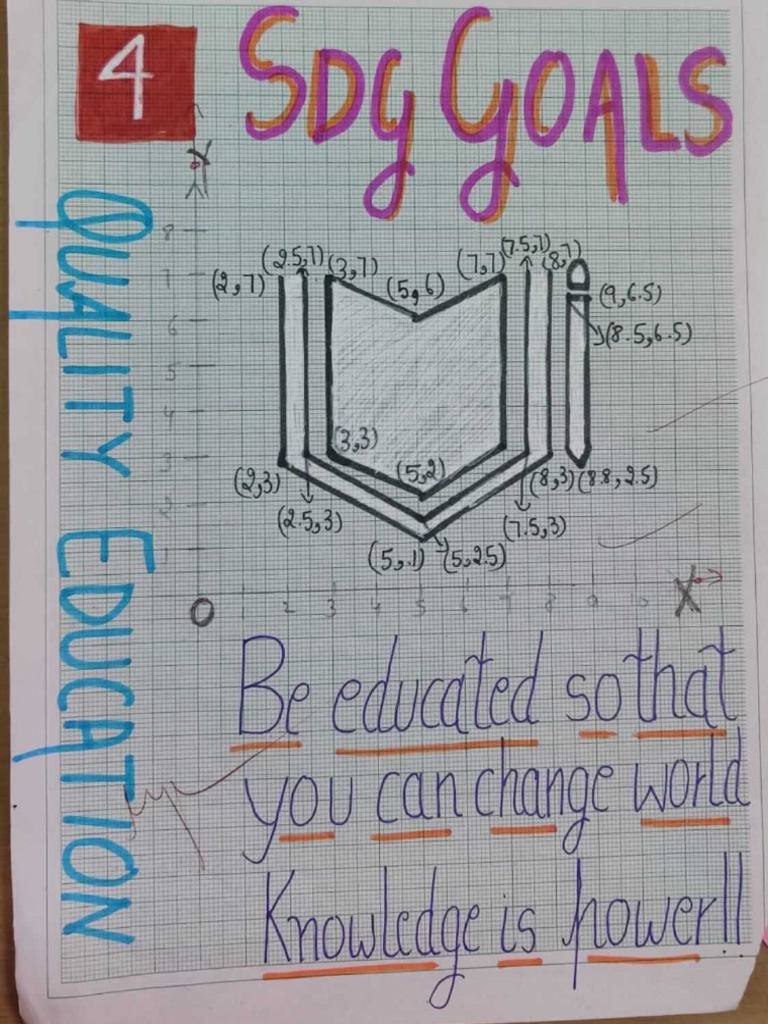 4
SDG GOALS
QUALITY EDUCATION
Y
8
7
6
5
4
3
2
1
(2,7)
(2.5,7)
(3,7)
(5,6)
(7,7)
(7.5,7)
(8,7)
(9,6.5)
(8.5,6.5)
(3,3)
(5,2)
(2,3)
(2.5,3)
(5,.1)
(5,2.5)
(7.5,3)
(8,3)
(8.8,2.5)
O 1 2 3 4 5 6 7 8 9 10 X
Be educated so that
you can change world
Knowledge is power!!